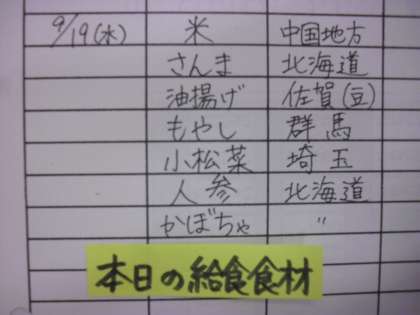 9/19(水) 米 中国地方
さんま 北海道
油揚げ 佐賀(豆)
もやし 群馬
小松菜 埼玉
人参 北海道
かぼちゃ 〃
本日の給食食材